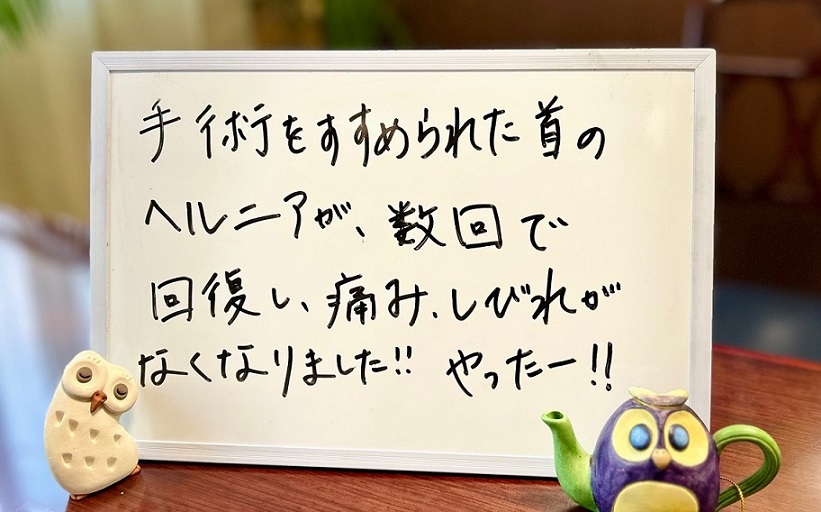 手術をすすめられた首の
ヘルニアが、数回で
回復し、痛み、しびれが
なくなりました!! やったー!!